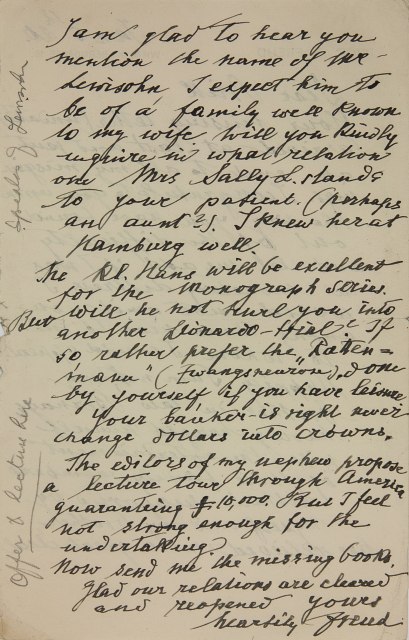 I am glad to hear you
mention the name of Mr
Lewisohn I expect him to
be of a family well known
to my wife will you kindly
inquire in what relation
one Mrs Sally L. stands
to your patient. (perhaps
an aunt?). I knew her at
Hamburg well.
The Kl. Hans will be excellent
for the Monograph Series.
But will he not hurl you into
another Leonardo-trial? If
so rather prefer the „Ratten=
mann" (Zwangsneurose), done
by yourself if you have leisure
Your banker is right never
change dollars into crowns.
The editors of my nephew propose
a lecture tour through America
guaranteing $ 10,000. But I feel
not strong enough for the
undertaking
Now send me the missing books.
Glad our relations are cleared
and reopened yours
heartily Freud
speaks of Lewisohn
Offer to lecture here